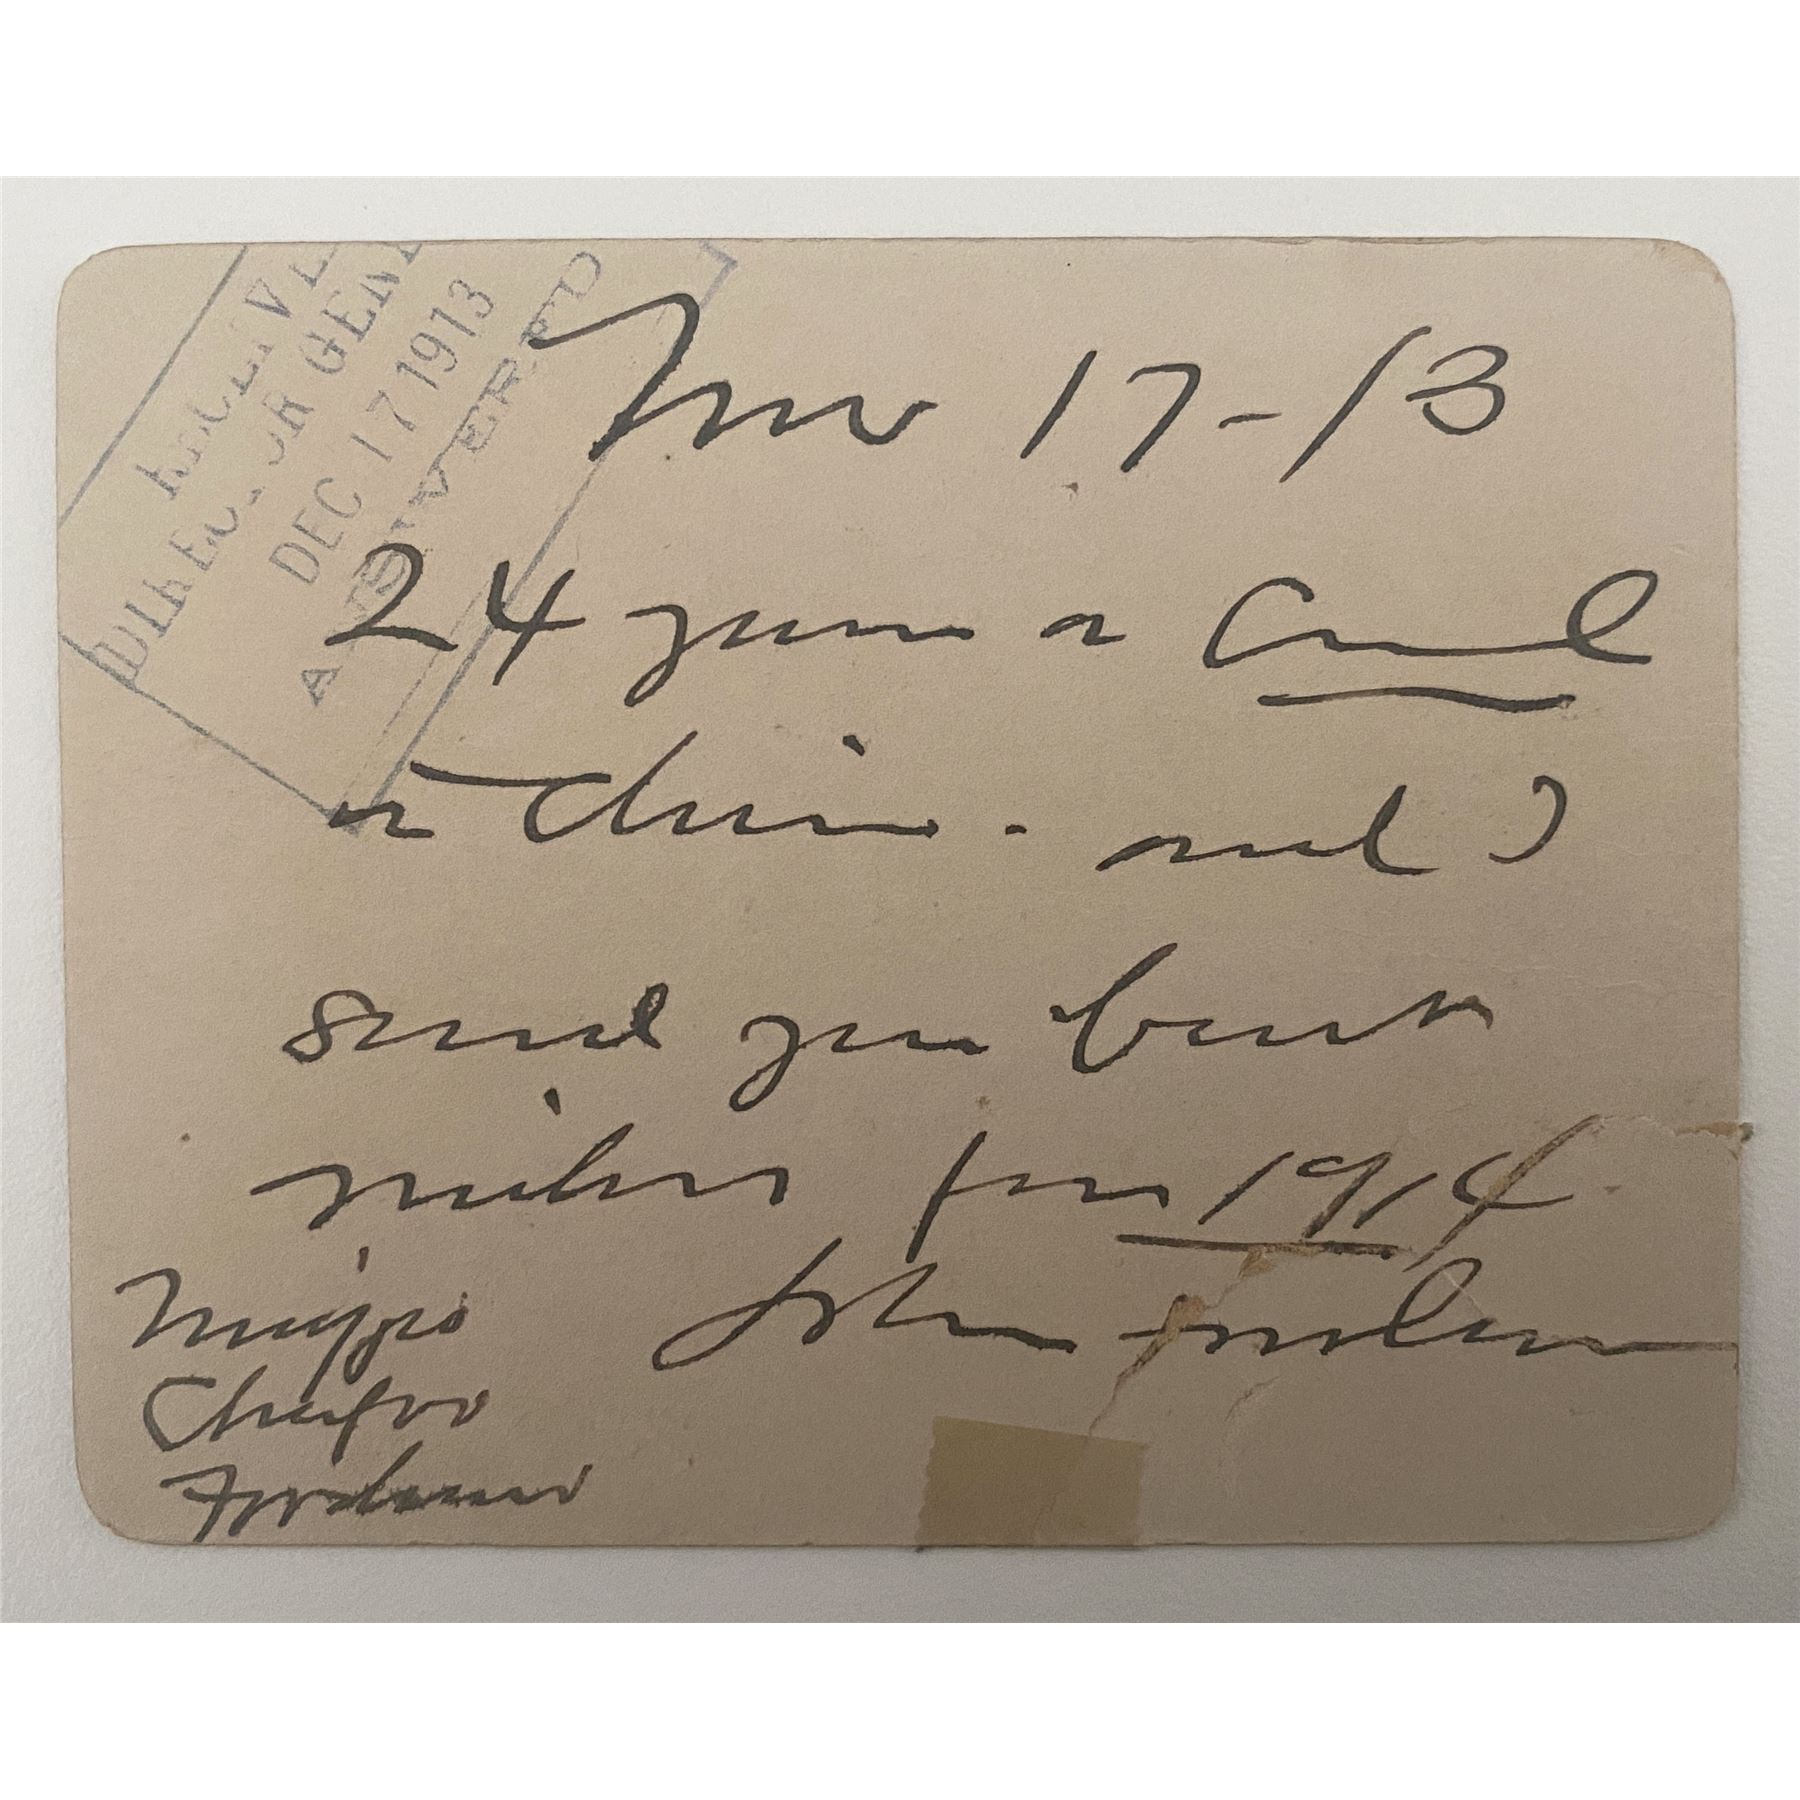 RECEIVE
DIRECTOR GENE
DEC 17 1913
ANSWERED
Nov 17-13
24 years a Card
in China. and I
send you best
wishes for 1914
John